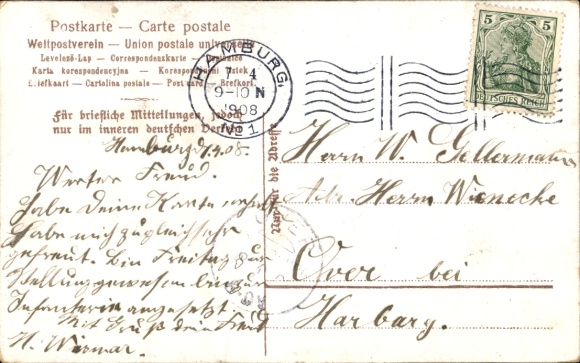 Postkarte — Carte postale
Weltpostverein — Union postale universelle
Levelező-Lap — Correspondenzkarte —
Karta korespondencyjna — Korespondenční lístek
Briefkaart — Cartolina postale — Post card — Brefkort
Für briefliche Mitteilungen, jedoch
nur im inneren deutschen Verkehr
HAMBURG
7 4
9-10 N
1908
No 1
5 5
DEUTSCHES REICH
Nur für die Adresse
Hamburg d 7.4.08.
Werter Freud.
Habe deine Karte
habe mich zugleich sehr
gefreut. bin Freitag zur
Stellung gewesen bin zur
Infanterie angesetzt.
Mit Gruß dein Freud
H. Wismar.
Herrn W. Gellermann
Adr. Herrn Wienecke
Over bei
Harburg.